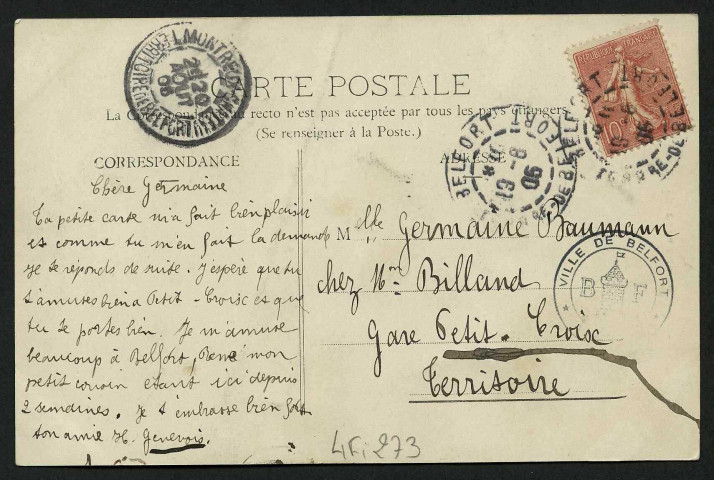 CARTE POSTALE
La Correspondance au recto n'est pas acceptée par tous les pays étrangers
(Se renseigner à la Poste.)
CORRESPONDANCE
ADRESSE
Chère Germaine
Ta petite carte m'a fait bien plaisir
et comme tu m'en fait la demande
je te réponds de suite. J'espère que tu
t'amuses bien a Petit-Croix et que
tu te portes bien. Je m'amuse
beaucoup à Belfort, René mon
petit cousin étant ici depuis
2 semaines. Je t'embrasse bien fort
ton amie H. Genevois.
Melle Germaine Baumann
chez Mr Billand
Gare Petit-Croix
Territoire
MONTREUX
TERRITOIRE DE BELFORT
20
AOUT
06
BELFORT
TERRRE-DE-BELFORT
RÉPUBLIQUE FRANÇAISE
10
VILLE DE BELFORT
B F
4Fi 273